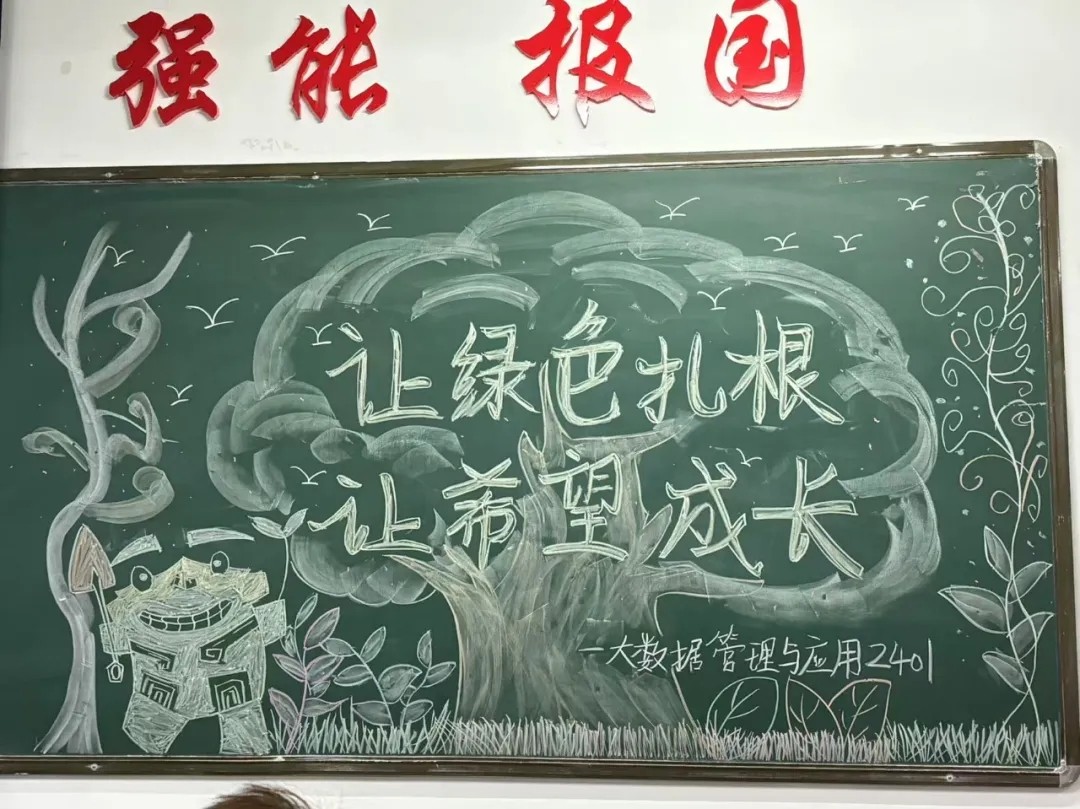 强能 报国
让绿色扎根
让希望成长
一大数据管理与应用2401